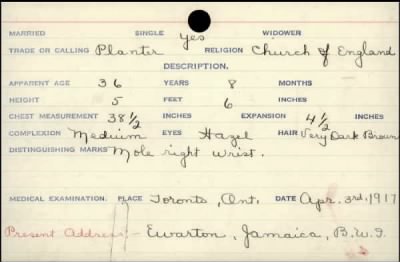 MARRIED SINGLE yes WIDOWER
TRADE OR CALLING Planter RELIGION Church of England
DESCRIPTION.
APPARENT AGE 36 YEARS 8 MONTHS
HEIGHT 5 FEET 6 INCHES
CHEST MEASUREMENT 38 1/2 INCHES EXPANSION 4 1/2 INCHES
COMPLEXION Medium EYES Hazel HAIR Very Dark Brown
DISTINGUISHING MARKS Mole right wrist.
MEDICAL EXAMINATION. PLACE Toronto, Ont. DATE Apr. 3rd, 1917
Present Address:- Ewarton, Jamaica, B.W.I.